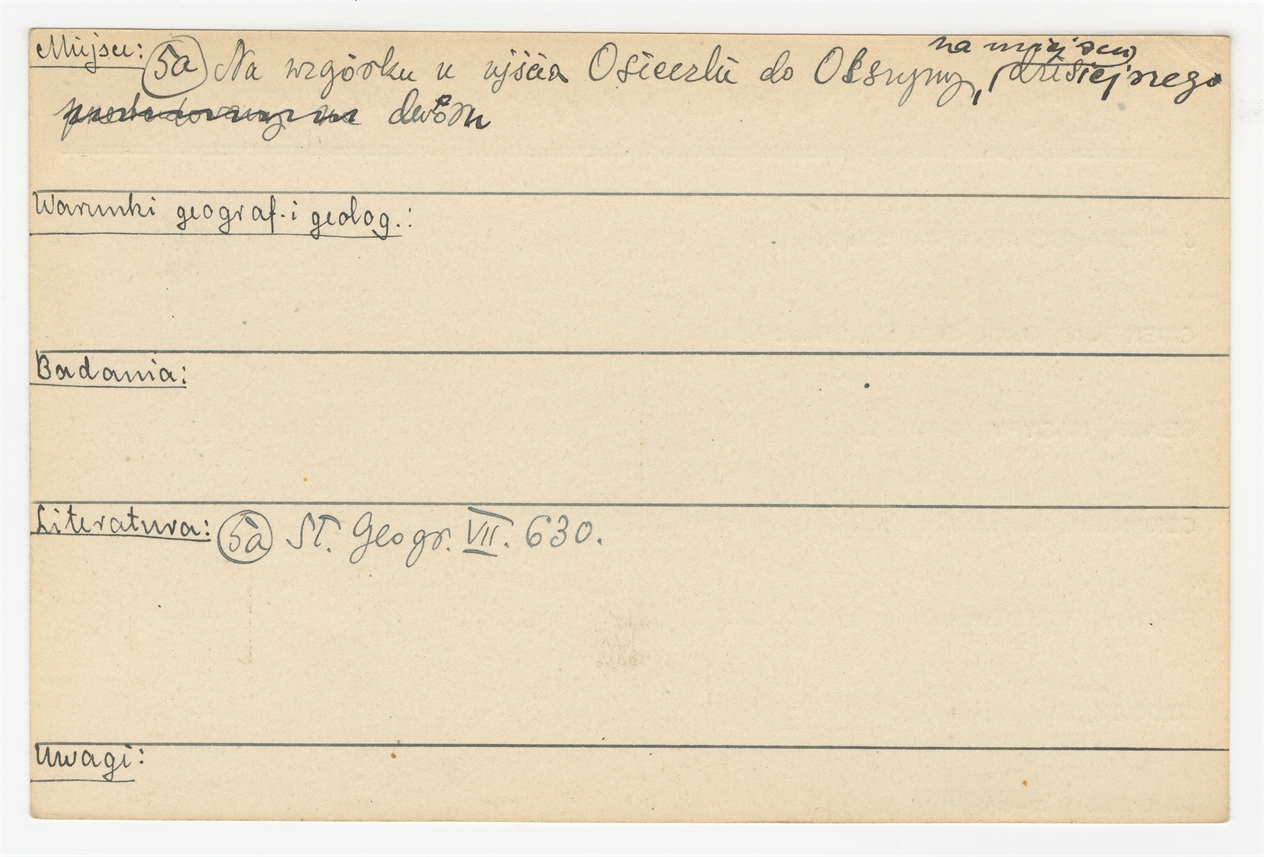 Miejsce: 5a Na wzgórku u ujścia Osieczki do Olszyny, na miejscu dzisiejszego
dworu
Warunki geograf. i geolog.:
Badania:
Literatura: 5a Sł. Geogr. VII. 630.
Uwagi: